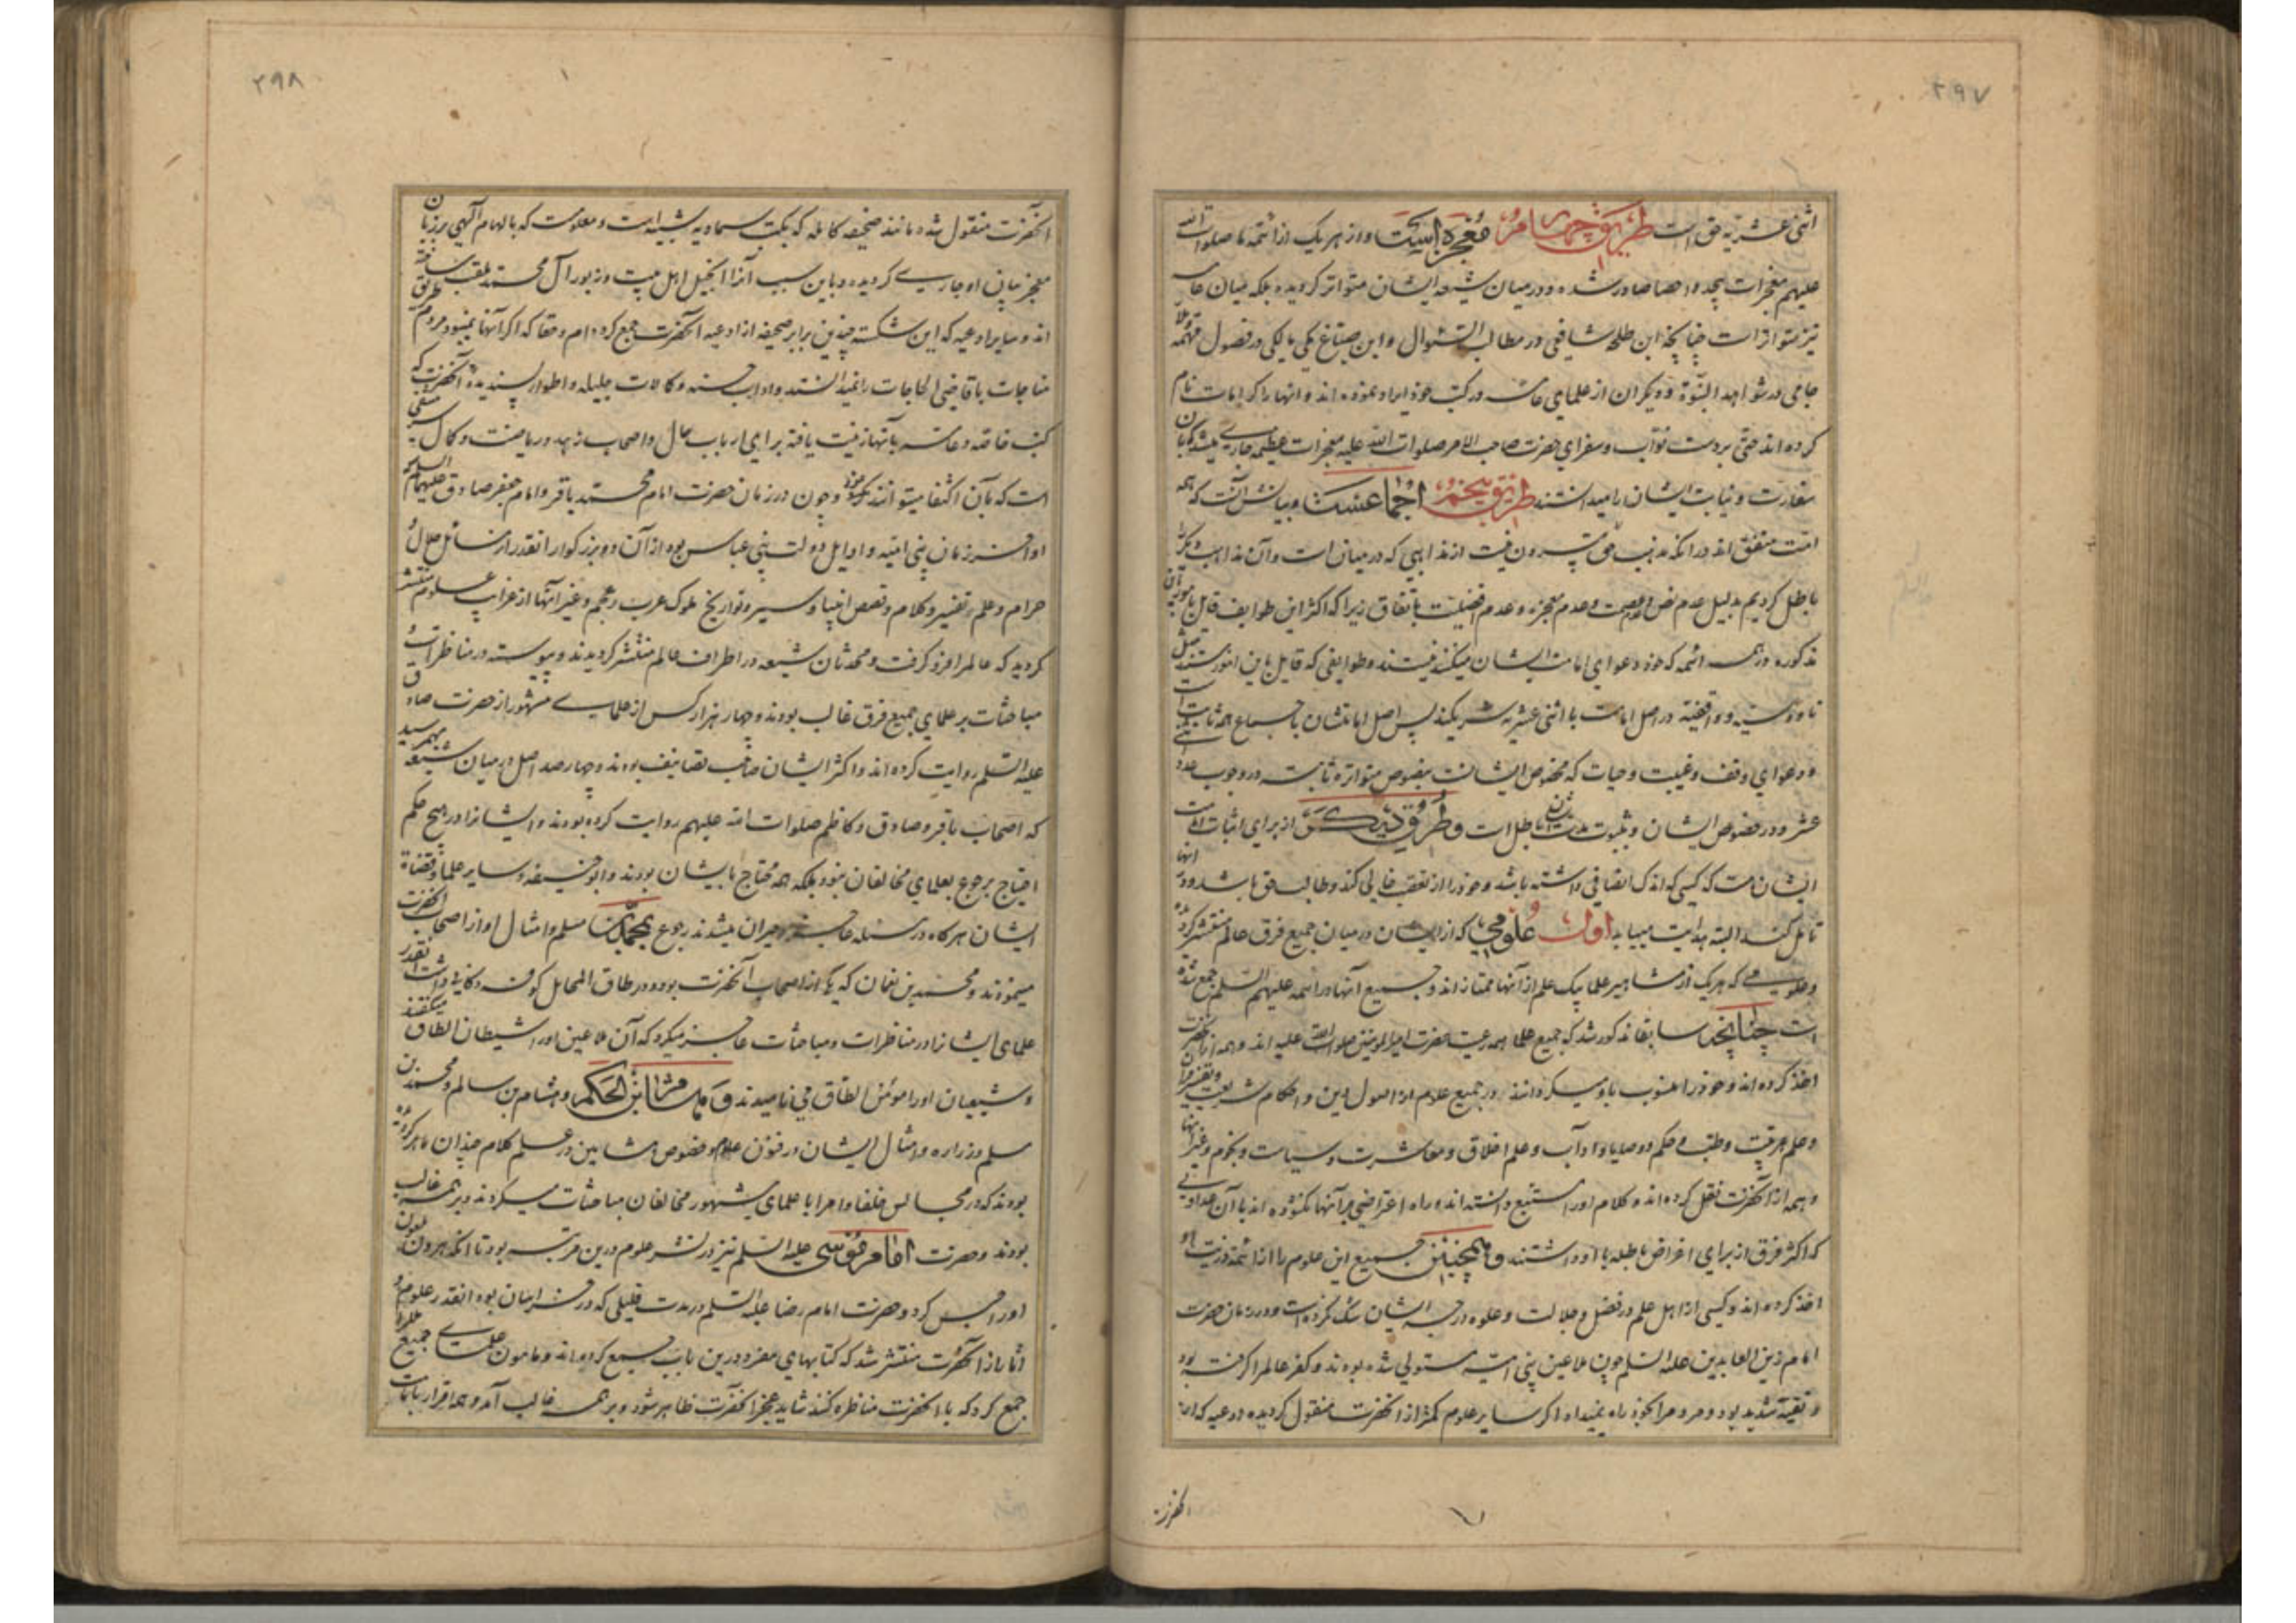 ۲۹۷
اثنی عشریه حق است طریق چهارم معجزه است و از هر یک از ائمه ما صلوات الله
علیهم معجزات بیحد و احصا صادر شده و در میان شیعه ایشان متواتر کردیده بلکه میان عامه
نیز متواتر است چنانچه ابن طلحه شافعی در مطالب السئوال و ابن صباغ مکی مالکی در فصول مهمه و ملا
جامی در شواهد النبوة و دیکران از علمای عامه در کتب خود ایراد نموده اند و انها را کرامات نام
کرده اند حتی بر دست نواب و سفرای حضرت صاحب الامر صلوات الله علیه معجزات عظیمه جاری میشد که بآن
سفارت و نیابت ایشان را میدانستند طریق پنجم اجماعست و بیانش آنست که همه
امت متفق اند در انکه مذهب حق بیرون نیست از مذاهبی که در میان است و آن مذاهب دیکر را
باطل کردیم بدلیل عدم نص و عصمت و عدم معجزه و عدم افضلیت باتفاق زیرا که اکثر این طوایف قایل بامور
مذکوره در همه ائمه که خود دعوای امامت ایشان میکنند نیستند و طوایفی که قایل باین امور هستند مثل
ناووسیه و واقفیه در اصل امامت با اثنی عشریه شریکند پس اصل امامتشان باجماع همه ثابت است
و دعوای وقف و غیبت و حیات که مخصوص ایشانست بنصوص متواتره ثابته در وجوب عدد
عشر و در خصوص ایشان و بثبوت باطل است و طرق دیکر از برای اثبات امامت
ایشان هست که کسی که اندک انصافی داشته باشد و خود را از تعصب خالی کند و طالب حق باشد و در انها
تامل کند البته هدایت مییابد اول علومی که از ایشان در میان جمیع فرق عالم منتشر کردیده
و علومی که هر یک از مشاهیر علما بیک علم از آنها ممتاز اند و جمیع آنها در ائمه علیهم السلم جمع شده
است چنانچه سابقا مذکور شد که جمیع علما همه رعیت حضرت امیر المومنین صلوات الله علیه اند و همه از آنحضرت
اخذ کرده اند و خود را منسوب باو میکردانند در جمیع علوم از اصول دین و احکام شریعت و تفسیر قرآن
و علم عربیت و طب و حکم و وصایا و آداب و علم اخلاق و معاشرت و سیاست و نجوم و غیر انها
و همه از آنحضرت نقل کرده اند و کلام او را متتبع دانسته اند و راه اعتراضی بر آنها نکشوده اند با آن عداوتی
که اکثر فرق از برای اغراض باطله با او داشتند و همچنین جمیع این علوم را از ائمه ذریت او
اخذ کرده اند و کسی از اهل علم در فضل و جلالت و علو درجه ایشان شک نکرده است و در زمان حضرت
امام زین العابدین علیه السلم چون ملاعین بنی امیه مستولی شده بودند و کفر عالم را کرفته بود
و تقیه شدید بود و مردم را بخود راه نمیداد اکر سایر علوم کمتر از آنحضرت منقول کردیده ادعیه که از
انحضرت
۲۹۸
آنحضرت منقول شده مانند صحیفه کامله که بکتب سماویه شبیه است و معلومست که بالهام الهی بر زبان
معجز بیان او جاری کردیده و باین سبب آنرا انجیل اهل بیت و زبور آل محمد ملقب ساخته
اند و سایر ادعیه که این شکسته چندین برابر صحیفه از ادعیه آنحضرت جمع کرده ام و حقا که اکر آنها نمیبود مردم طریق
مناجات با قاضی الحاجات را نمیدانستند و آداب حسنه و کمالات جلیله و اطوار پسندیده آنحضرت که
کتب خاصه و عامه بآنها زینت یافته برای ارباب حال و اصحاب زهد و ریاضت و کمال سرمشقی
است که بآن اکتفا میتوانند نمود و چون در زمان حضرت امام محمد باقر و امام جعفر صادق علیهما السلم
اواخر زمان بنی امیه و اوایل دولت بنی عباس بود از آن دو بزرکوار انقدر از مسائل حلال و
حرام و علم تفسیر و کلام و قصص انبیا و سیر و تواریخ ملوک عرب و عجم و غیر آنها از غرایب علوم منتشر
کردید که عالم را فرو کرفت و محدثان شیعه در اطراف عالم منتشر کردیدند و پیوسته در مناظرات و
مباحثات بر علمای جمیع فرق غالب بودند و چهار هزار کس از علمای مشهور از حضرت صادق
علیه السلم روایت کرده اند و اکثر ایشان صاحب تصانیف بودند و چهار صد اصل در میان شیعه بهم رسید
که اصحاب باقر و صادق و کاظم صلوات الله علیهم روایت کرده بودند و ایشانرا در هیچ حکم
احتیاج برجوع بعلمای مخالفان نبود بلکه همه محتاج بایشان بودند و ابو حنیفه و سایر علما و قضاة
ایشان هرکاه در مسئله عاجز و حیران میشدند رجوع بمحمد بن مسلم و امثال او از اصحاب آنحضرت
مینمودند و محمد بن نعمان که یکی از اصحاب آنحضرت بود و در طاق المحامل کوفه دکانی داشت انقدر
علمای ایشانرا در مناظرات و مباحثات عاجز میکرد که آن ملاعین او را شیطان الطاق میکفتند
و شیعیان او را مومن الطاق می نامیدند و هشام ابن الحکم و هشام بن سالم و محمد بن
مسلم و زراره و امثال ایشان در فنون علوم خصوصا در علم کلام چندان ماهر کردیده
بودند که در مجالس خلفا و امرا با علمای مشهور مخالفان مباحثات میکردند و بر همه غالب
بودند و حضرت امام موسی علیه السلم نیز در نشر علوم درین مرتبه بود تا انکه هرون ملعون
او را حبس کرد و حضرت امام رضا علیه السلم در مدت قلیلی که در خراسان بود انقدر علوم و
آثار از آنحضرت منتشر شد که کتابهای مفرد درین باب جمع کرده اند و مامون علمای جمیع ملل را
جمع کرد که با آنحضرت مناظره کنند شاید عجز آنحضرت ظاهر شود و بر همه غالب آمد و همه اقرار بامامت